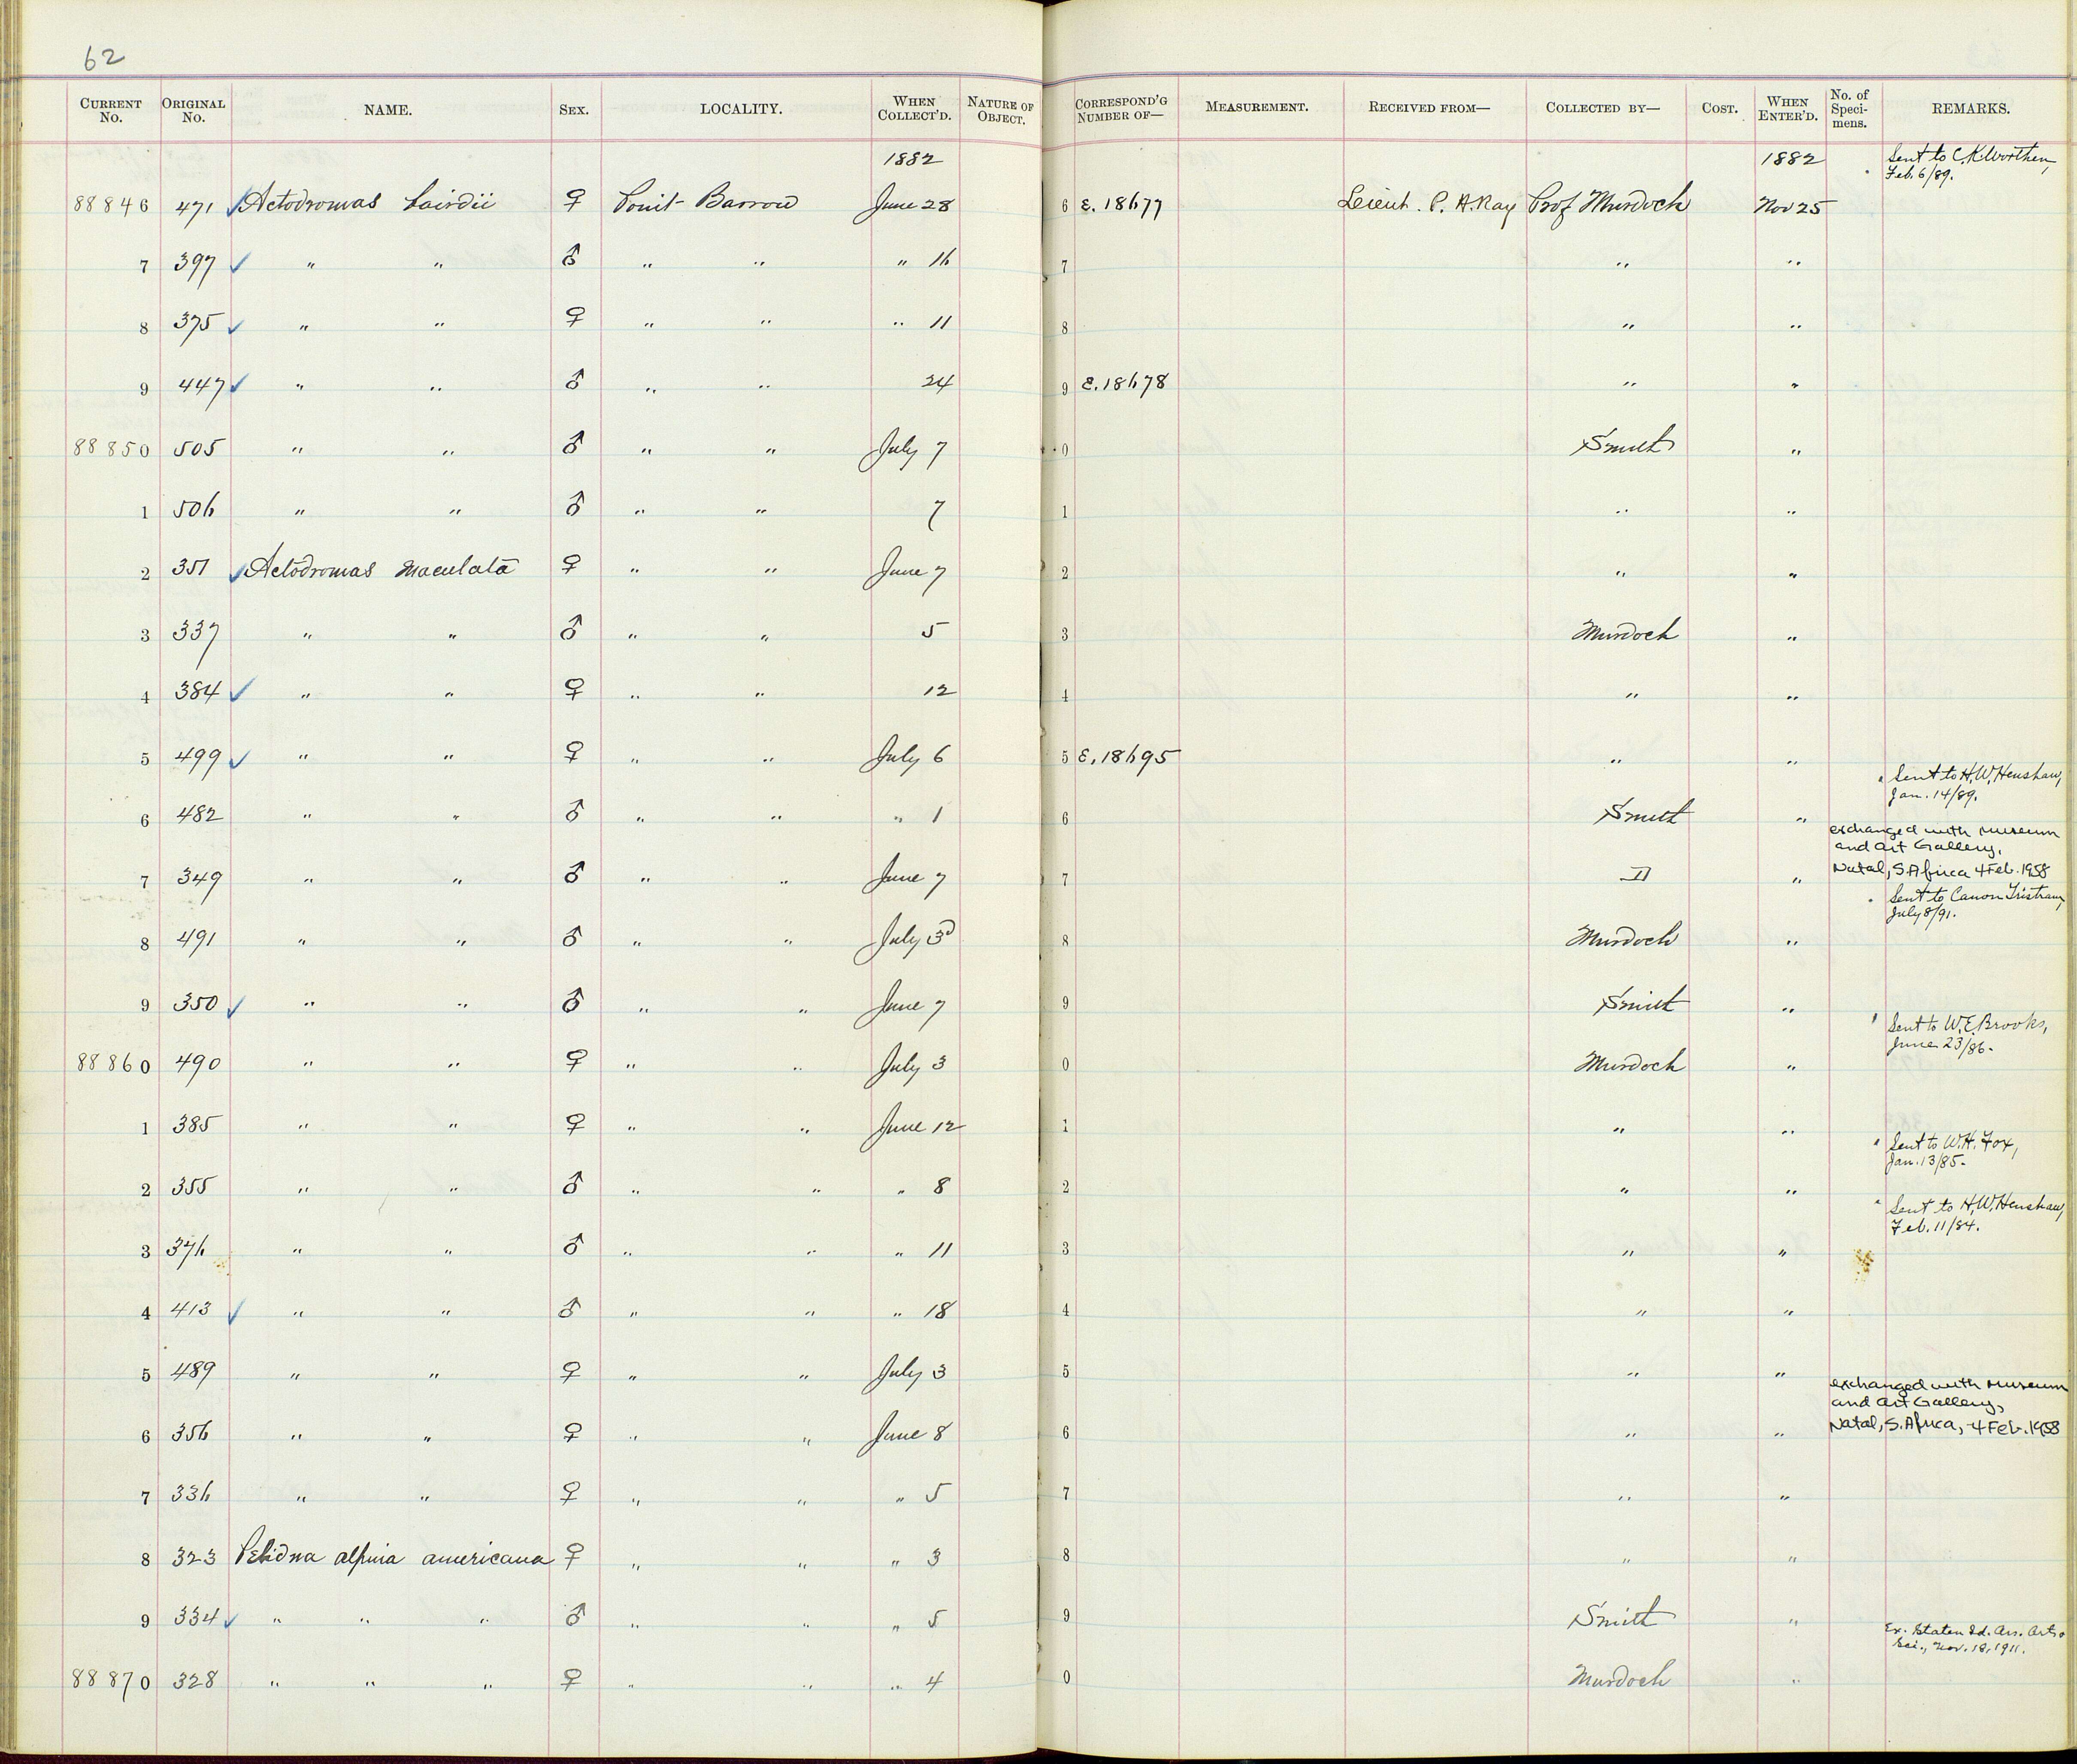 62
CURRENT No. ORIGINAL No. NAME. SEX. LOCALITY. WHEN COLLECT'D. NATURE OF OBJECT. CORRESPOND'G NUMBER OF— MEASUREMENT. RECEIVED FROM— COLLECTED BY— COST. WHEN ENTER'D. No. of Speci-mens. REMARKS.
1882 1882 Sent to C.K. Worthen,
Feb. 6/89.
88846 471 ✓ Actodromas bairdii ♀ Point Barrow June 28 6 E. 18677 Lieut. P. H. Ray Prof Murdoch Nov 25
7 397 ✓ " " ♂ " " " 16 7 " "
8 375 ✓ " " ♀ " " " 11 8 " "
9 447 ✓ " " ♂ " " 24 9 E. 18678 " "
88850 505 " " ♂ " " July 7 0 Smith "
1 506 " " ♂ " " 7 1 " "
2 351 ✓ Actodromas maculata ♀ " " June 7 2 " "
3 337 " " ♂ " " 5 3 Murdoch "
4 384 ✓ " " ♀ " " 12 4 " "
5 499 ✓ " " ♀ " " July 6 5 E. 18695 " "
Sent to H.W. Henshaw,
Jan. 14/89.
6 482 " " ♂ " " " 1 6 Smith "
exchanged with Museum
and Art Gallery,
7 349 " " ♂ " " June 7 7 " " Natal, S. Africa 4 Feb. 1958
Sent to Canon Tristram,
July 8/91.
8 491 " " ♂ " " July 3d 8 Murdoch "
9 350 ✓ " " ♂ " " June 7 9 Smith "
Sent to W.E. Brooks,
June 23/86.
88860 490 " " ♀ " " July 3 0 Murdoch "
1 385 " " ♀ " " June 12 1 " "
Sent to W.H. Fox,
Jan. 13/85.
2 355 " " ♂ " " " 8 2 " "
Sent to H.W. Henshaw,
Feb. 11/84.
3 376 " " ♂ " " " 11 3 " "
4 413 ✓ " " ♂ " " " 18 4 " "
5 489 " " ♀ " " July 3 5 " "
exchanged with Museum
and Art Gallery,
6 356 " " ♀ " " June 8 6 " " Natal, S. Africa, 4 Feb. 1958
7 336 " " ♀ " " " 5 7 " "
8 323 Pelidna alpina americana ♀ " " " 3 8 " "
9 334 ✓ " " " ♂ " " " 5 9 Smith "
Ex. Staten Id. Ass. Arts &
Sci., Nov. 18, 1911.
88870 328 " " " ♀ " " " 4 0 Murdoch "